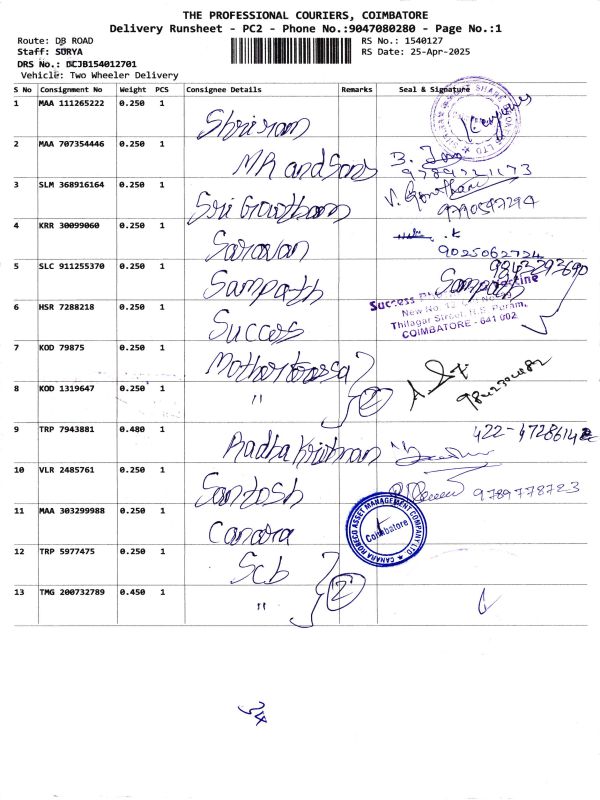 THE PROFESSIONAL COURIERS, COIMBATORE
Delivery Runsheet - PC2 - Phone No.:9047080280 - Page No.:1
Route: DB ROAD
RS No.: 1540127
Staff: SURYA
RS Date: 25-Apr-2025
DRS No.: DCJB154012701
Vehicle: Two Wheeler Delivery
S No Consignment No Weight PCS Consignee Details Remarks Seal & Signature
1 MAA 111265222 0.250 1 Shriram
2 MAA 707354446 0.250 1 MR and Sons B.
9789721173
3 SLM 368916164 0.250 1 Sri Gowtham V. Gowtham
9790597294
4 KRR 30099060 0.250 1 Saravan
9025062724
5 SLC 911255370 0.250 1 Sampath Sampath
9843293690
6 HSR 7288218 0.250 1 Success
Success
Thilagar Street, R.S. Puram,
COIMBATORE - 641 002
7 KOD 79875 0.250 1
8 KOD 1319647 0.250 1 " 2
9 TRP 7943881 0.480 1 Radha Krishnan
10 VLR 2485761 0.250 1 Santosh 9789778723
11 MAA 303299988 0.250 1 Canara
CANARA ROBECO ASSET MANAGEMENT COMPANY LTD
Coimbatore
12 TRP 5977475 0.250 1 Scb 2
13 TMG 200732789 0.450 1 "